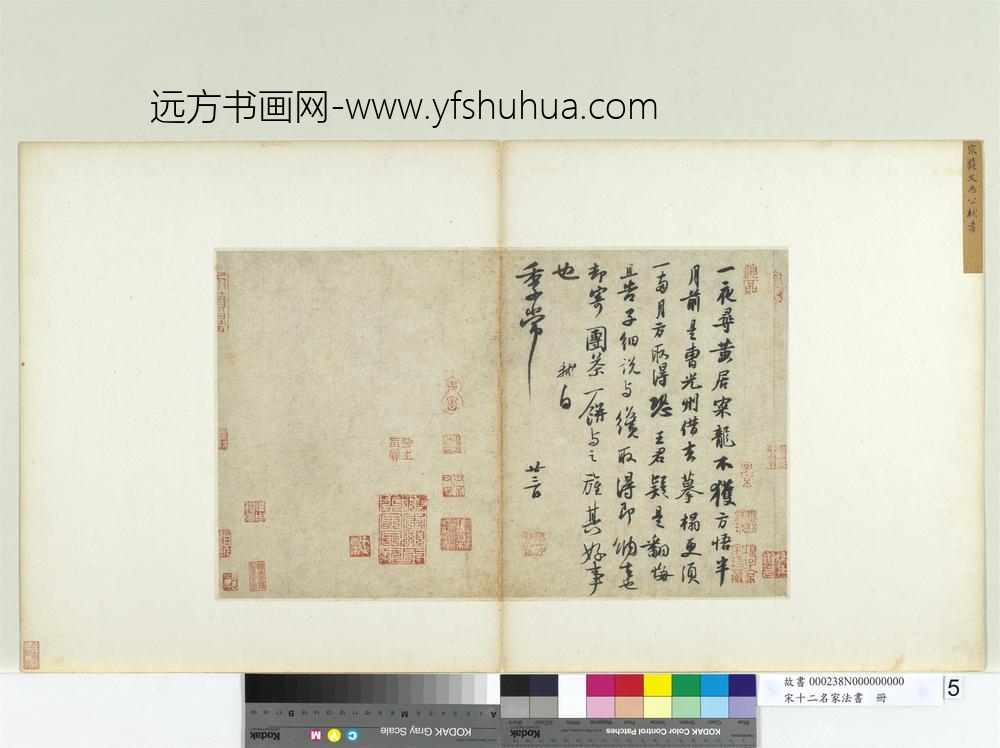 远方书画网-www.yfshuhua.com
宋蘇文忠公軾書
一夜尋黃居寀龍不獲方悟半
月前是曹光州借去摹搨更須
一兩月方取得恐王君疑是翻悔
且告子細說與纔取得即納去也
却寄團茶一餅與之旌其好事
也
軾白
季常
廿三日
故書 000238N000000000
宋十二名家法書 冊
5
KODAK Gray Scale
Kodak
C
Y
M
A
M
B
KODAK Color Control Patches
Kodak
Blue
Cyan
Green
Yellow
Red
Magenta
White
3/Color
Black